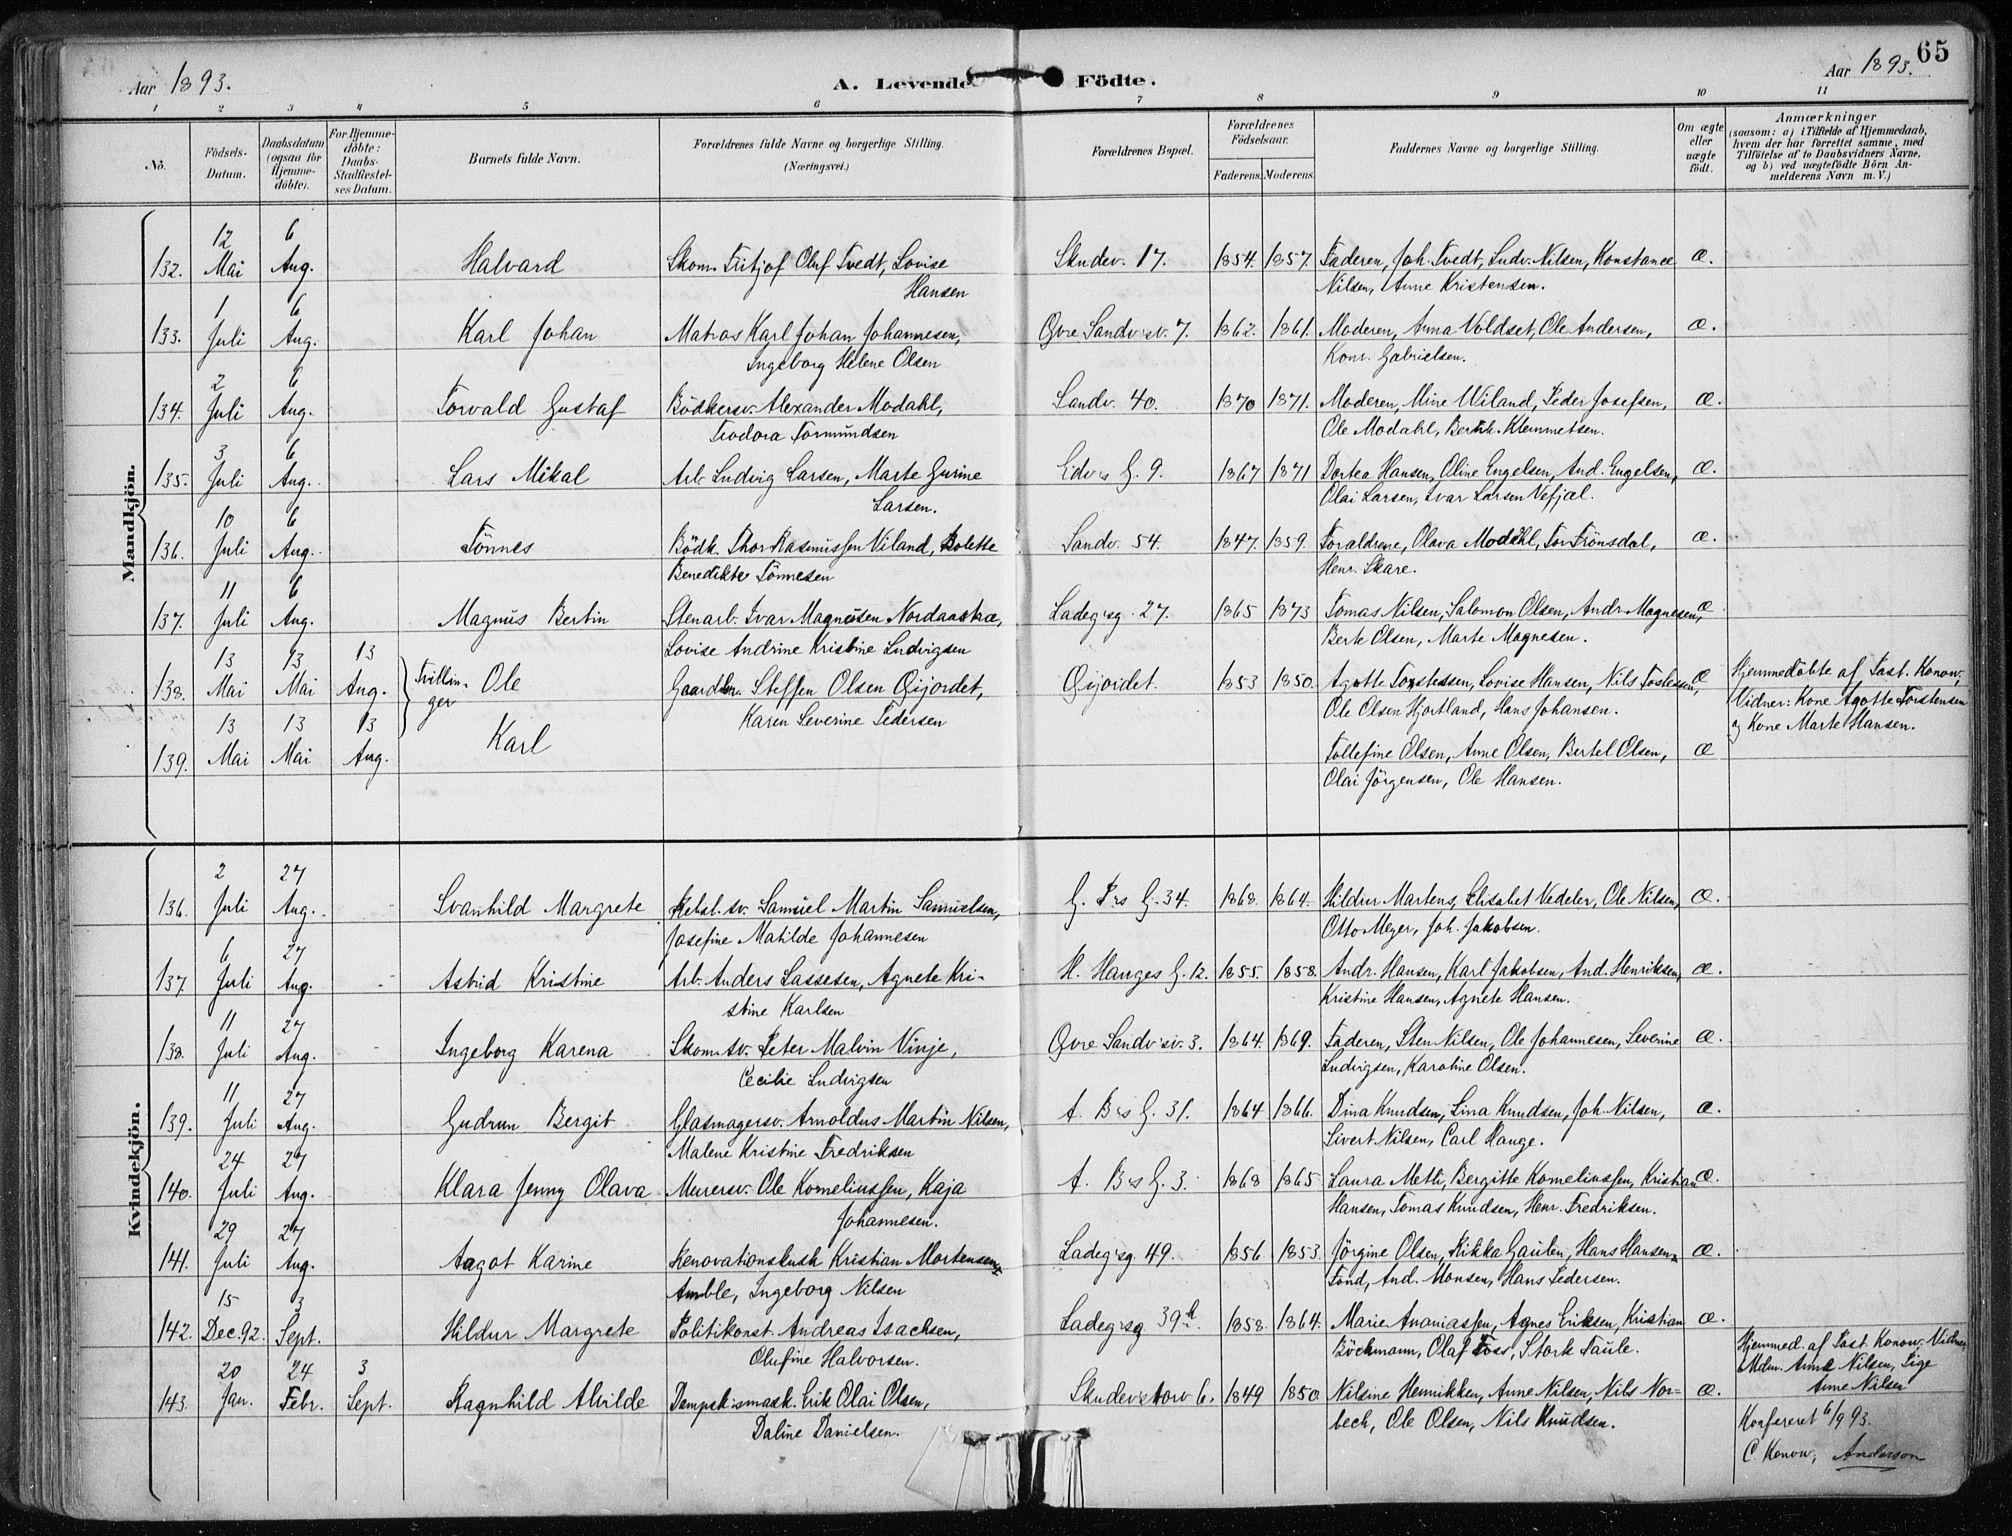 65
Aar 1893.
A. Levende Födte.
Aar 1893.
1 2 3 4 5 6 7 8 9 10 11
No.
Födsels-Datum.
Daabsdatum (ogsaa for Hjemmedöbte).
For Hjemmedöbte: Daabs-Stadfæstelses Datum.
Barnets fulde Navn.
Forældrenes fulde Navne og borgerlige Stilling.
(Næringsvei.)
Forældrenes Bopæl.
Forældrenes Födselsaar.
Faderens. Moderens.
Faddernes Navne og borgerlige Stilling.
Om ægte eller uægte födt.
Anmærkninger
(saasom: a) i Tilfælde af Hjemmedaab, hvem der har forrettet samme, med Tilföielse af to Daabsvidners Navne, og b) ved uægtefödte Börn Anmelderens Navn m. V.)
Mandkjön.
12 6
132. Mai Aug. Halvard Skom. Fritjof Oluf Tvedt, Lovise Skudev. 17. 1854. 1857. Faderen, Joh. Tvedt, Ludv. Nilsen, Konstance æ.
Hansen Nilsen, Anne Kristensen.
1 6
133. Juli Aug. Karl Johan Matros Karl Johan Johannesen, Øvre Sandv.sv. 7. 1862. 1861. Moderen, Anna Voldset, Ole Andersen, æ.
Ingeborg Helene Olsen Konr. Gabrielsen.
2 6
134. Juli Aug. Torvald Gustaf Bödkersv. Alexander Modahl, Sandv. 40. 1870 1871. Moderen, Mine Wiland, Peder Josefsen, æ.
Teodora Tormundsen Ole Modahl, Berth. Klemmetsen.
3 6
135. Juli Aug. Lars Mikal Arb. Ludvig Larsen, Marte Gurine Edvs G. 9. 1867 1871 Dortea Hansen, Oline Engelsen, And. Engelsen, æ.
Larsen. Olai Larsen, Ivar Larsen Vefjal.
10 6
136. Juli Aug. Tönnes Bödk. Thor Rasmussen Viland, Bolette Sandv. 54. 1847. 1859. Foraldrene, Olava Modahl, Tor Trönsdal, æ.
Benedikte Tönnesen Henr. Skare.
11 6
137. Juli Aug. Magnus Bertin Stenarb. Ivar Magnesen Nordaastræ, Ladeg.sg. 27. 1865 1873 Tomas Nilsen, Salomon Olsen, Andr. Magnesen, æ
Lovise Andrine Kristine Ludvigsen Berte Olsen, Marte Magnesen.
13 13 13
138. Mai Mai Aug. Tvillinger Ole Gaardbr. Steffen Olsen Gijordet, Gijordet. 1853 1850. Agotte Torstensen, Lovise Hansen, Nils Tostensen, æ Hjemmedöbte af Past. Konow,
Karen Severine Pedersen Ole Olsen Hjortland, Hans Johansen. Vidner: Kone Agotte Torstensen
13 13 13 og Kone Marte Hansen.
139. Mai Mai Aug. Karl Tollefine Olsen, Anne Olsen, Bertel Olsen, æ
Olai Jörgensen, Ole Hansen.
Kvindekjön.
2 27
136. Juli Aug. Svanhild Margrete Rebsl.sv. Samuel Martin Samuelsen, G. P.s G. 34. 1868. 1864. Hildur Martens, Elisabet Vedeler, Ole Nilsen, æ.
Josefine Matilde Johannesen Otto Meyer, Joh. Jakobsen.
6 27
137. Juli Aug. Astrid Kristine Arb. Anders Lassesen, Agnete Kri- H. Hauges G. 12. 1855. 1858. Andr. Hansen, Karl Jakobsen, And. Henriksen, æ.
stine Karlsen Kristine Hansen, Agnete Hansen.
11 27
138. Juli Aug. Ingeborg Karena Skom.sv. Peter Malvin Vinje, Øvre Sandv.sv. 3. 1864. 1869. Faderen, Sten Nilsen, Ole Johannesen, Severine æ.
Cecilie Ludvigsen Ludvigsen, Karoline Olsen.
11 27
139. Juli Aug. Gudrun Bergit Glasmagersv. Arnoldus Martin Nilsen, A. B.s G. 31. 1864 1866. Dina Knudsen, Lina Knudsen, Joh. Nilsen, æ.
Malene Kristine Fredriksen Sivert Nilsen, Carl Hauge.
24 27
140. Juli Aug. Klara Jenny Olava Murersv. Ole Korneliussen, Kaja A. B.s G. 3. 1868 1865 Laura Metli, Bergitte Korneliussen, Kristian æ.
Johannesen. Hansen, Tomas Knudsen, Henr. Fredriksen.
29 27
141. Juli Aug. Aagot Karine Renovationskusk Kristian Mortensen Ladeg.sg 49. 1856 1853. Jörgine Olsen, Rikka Gaulen, Hans Hansen æ.
Amble, Ingeborg Nilsen Tond, And. Monsen, Hans Pedersen.
15 3
142. Dec. 92. Sept. Hildur Margrete Politikonst. Andreas Isachsen, Ladeg.sg 39 1858. 1864. Marie Ananiassen, Agnes Eriksen, Kristian æ.
Olufine Halvorsen. Böckmann, Olaf Foss, Stork Faule.
20 24 3
143. Jan. Febr. Sept. Ragnhild Alvilde Dampskismask. Erik Olai Olsen, Skudevs torv 6. 1849 1850 Nilsine Henrikken, Anne Nilsen, Nils Nor- æ.
Daline Danielsen. bech, Ole Olsen, Nils Knudsen.
Hjemmed. af Past. Konow. Vidner,
Mdm. Anne Nilsen, Pige
Anne Nilsen
Konfereret 6/9 93.
C. Konow, Anderson